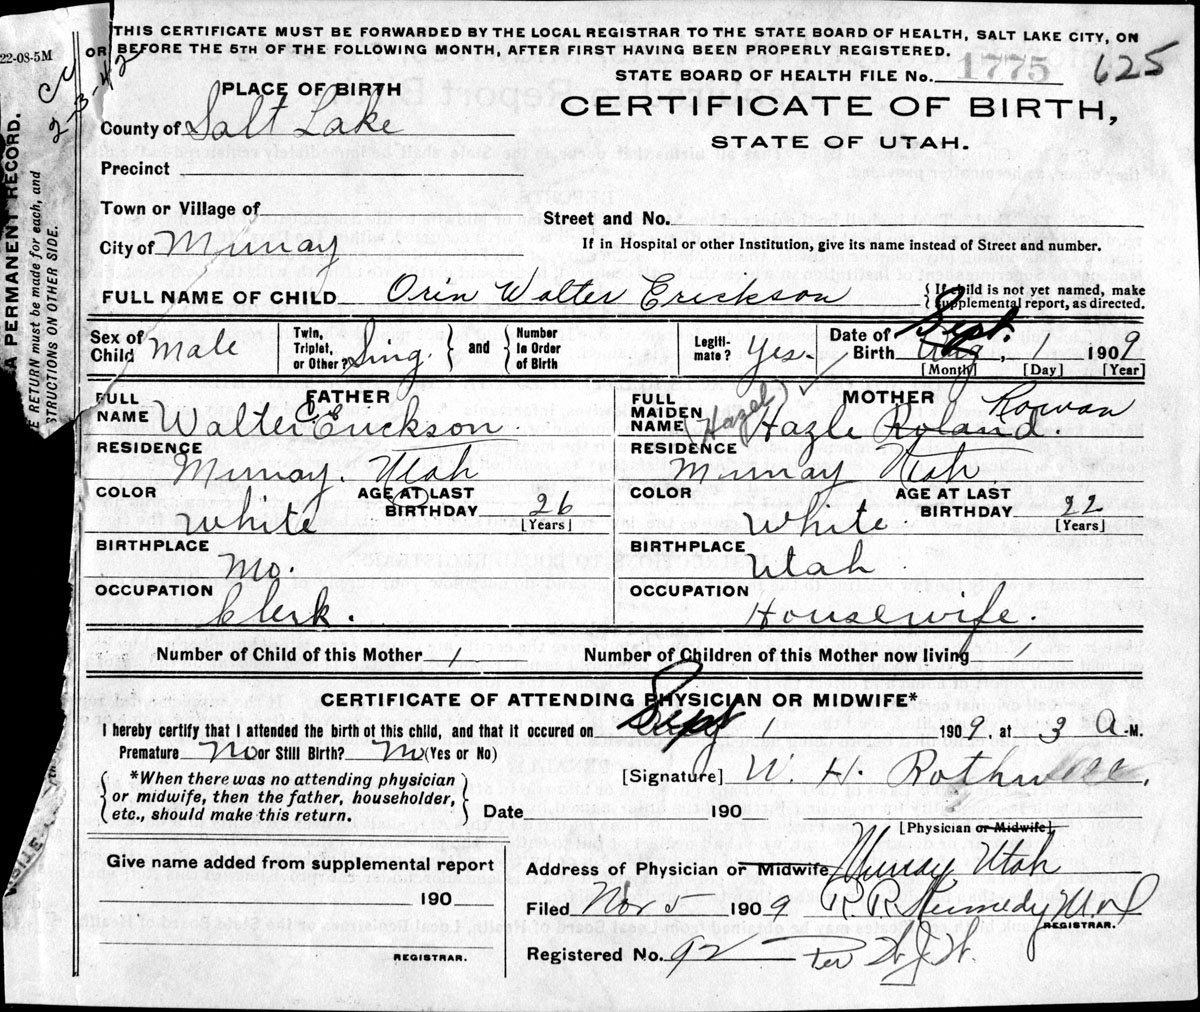 22-08-5M
THIS CERTIFICATE MUST BE FORWARDED BY THE LOCAL REGISTRAR TO THE STATE BOARD OF HEALTH, SALT LAKE CITY, ON
OR BEFORE THE 5TH OF THE FOLLOWING MONTH, AFTER FIRST HAVING BEEN PROPERLY REGISTERED.
STATE BOARD OF HEALTH FILE No. 1775 625
2-3-42
PLACE OF BIRTH
CERTIFICATE OF BIRTH,
County of Salt Lake
STATE OF UTAH.
Precinct
Town or Village of
Street and No.
City of Murray
If in Hospital or other Institution, give its name instead of Street and number.
FULL NAME OF CHILD Orin Walter Erickson
{If child is not yet named, make
supplemental report, as directed.
A PERMANENT RECORD.
RETURN must be made for each, and
STRUCTIONS ON OTHER SIDE.
Sex of Child Male
Twin, Triplet, or Other? Sing. } and { Number in Order of Birth
Legiti-mate? Yes.
Date of Birth Sept. Aug, 1909
[Month] [Day] [Year]
FATHER
FULL NAME Walter Erickson
RESIDENCE Murray. Utah
COLOR White
AGE AT LAST BIRTHDAY 26 [Years]
BIRTHPLACE Mo.
OCCUPATION Clerk.
MOTHER
FULL MAIDEN NAME (Hazel) Hazle Roland Rowan
RESIDENCE Murray Utah
COLOR White
AGE AT LAST BIRTHDAY 22 [Years]
BIRTHPLACE Utah
OCCUPATION Housewife.
Number of Child of this Mother 1 Number of Children of this Mother now living 1
CERTIFICATE OF ATTENDING PHYSICIAN OR MIDWIFE*
I hereby certify that I attended the birth of this child, and that it occured on Sept 1 1909, at 3 A-M.
Premature No or Still Birth? No (Yes or No)
*When there was no attending physician
or midwife, then the father, householder,
etc., should make this return.
[Signature] W. H. Rothwell.
Date 190
[Physician or Midwife]
Give name added from supplemental report
190
REGISTRAR.
Address of Physician or Midwife Murray Utah
Filed Nov 5 1909 R R Kennedy M.D
REGISTRAR.
Registered No. 92 Per